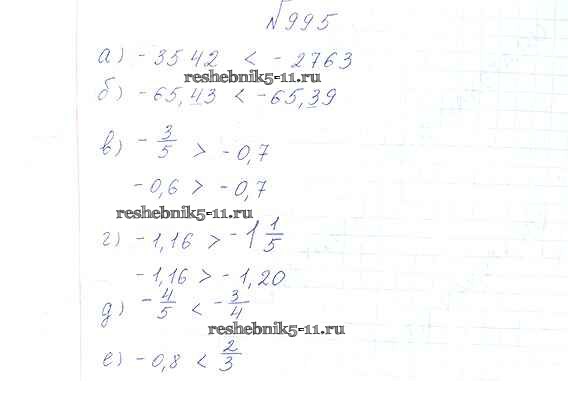 №995
а) -3542 < -2763
reshebnik5-11.ru
б) -65,43 < -65,39
в) -3/5 > -0,7
-0,6 > -0,7
reshebnik5-11.ru
г) -1,16 > -1 1/5
-1,16 > -1,20
д) -4/5 < -3/4
reshebnik5-11.ru
е) -0,8 < 2/3